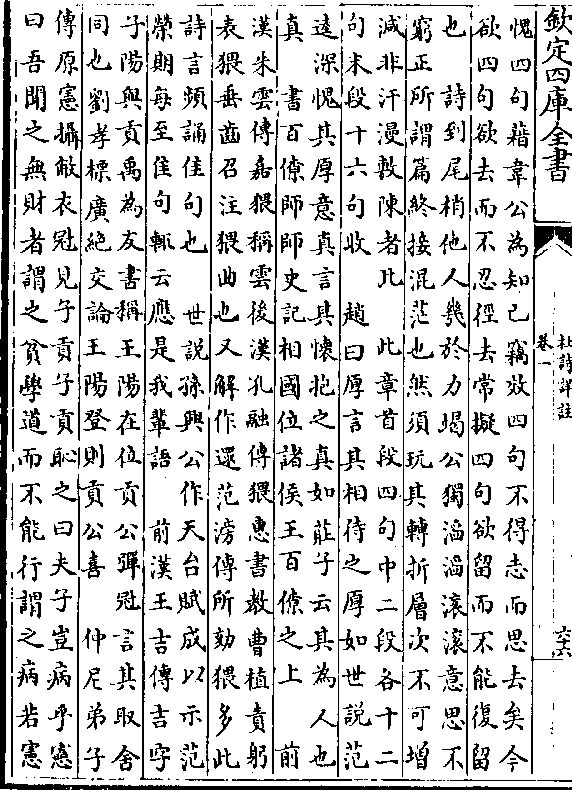 欽定四庫全書
杜詩詳註
卷一
六六
愧四句藉韋公為知己竊效四句不得志而思去矣今
欲四句欲去而不忍徑去常擬四句欲留而不能復留
也 詩到尾梢他人幾於力竭公獨滔滔滾滾意思不
窮正所謂篇終接混茫也然須玩其轉折層次不可增
減非汗漫敷陳者比 此章首段四句中二段各十二
句末段十六句收 趙曰厚言其相待之厚如世說范
逵深愧其厚意真言其懷抱之真如莊子云其為人也
真 書百僚師師史記相國位諸侯王百僚之上 前
漢朱雲傳嘉猥稱雲後漢孔融傳猥惠書教曹植責躬
表猥垂齒召注猥曲也又解作還范滂傳所劾猥多此
詩言頻誦佳句也 世說孫興公作天台賦成以示范
榮期每至佳句輒云應是我輩語 前漢王吉傳吉字
子陽與貢禹為友書稱王陽在位貢公彈冠 言其取舍
同也劉孝標廣絶交論王陽登則貢公喜 仲尼弟子
傳原憲攝敝衣冠見子貢子貢恥之曰夫子豈病乎憲
曰吾聞之無財者謂之貧學道而不能行謂之病若憲